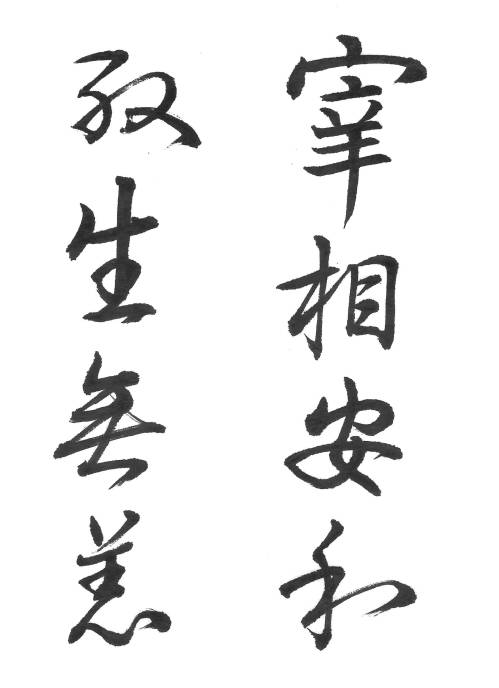 宰相安和
殷生無恙